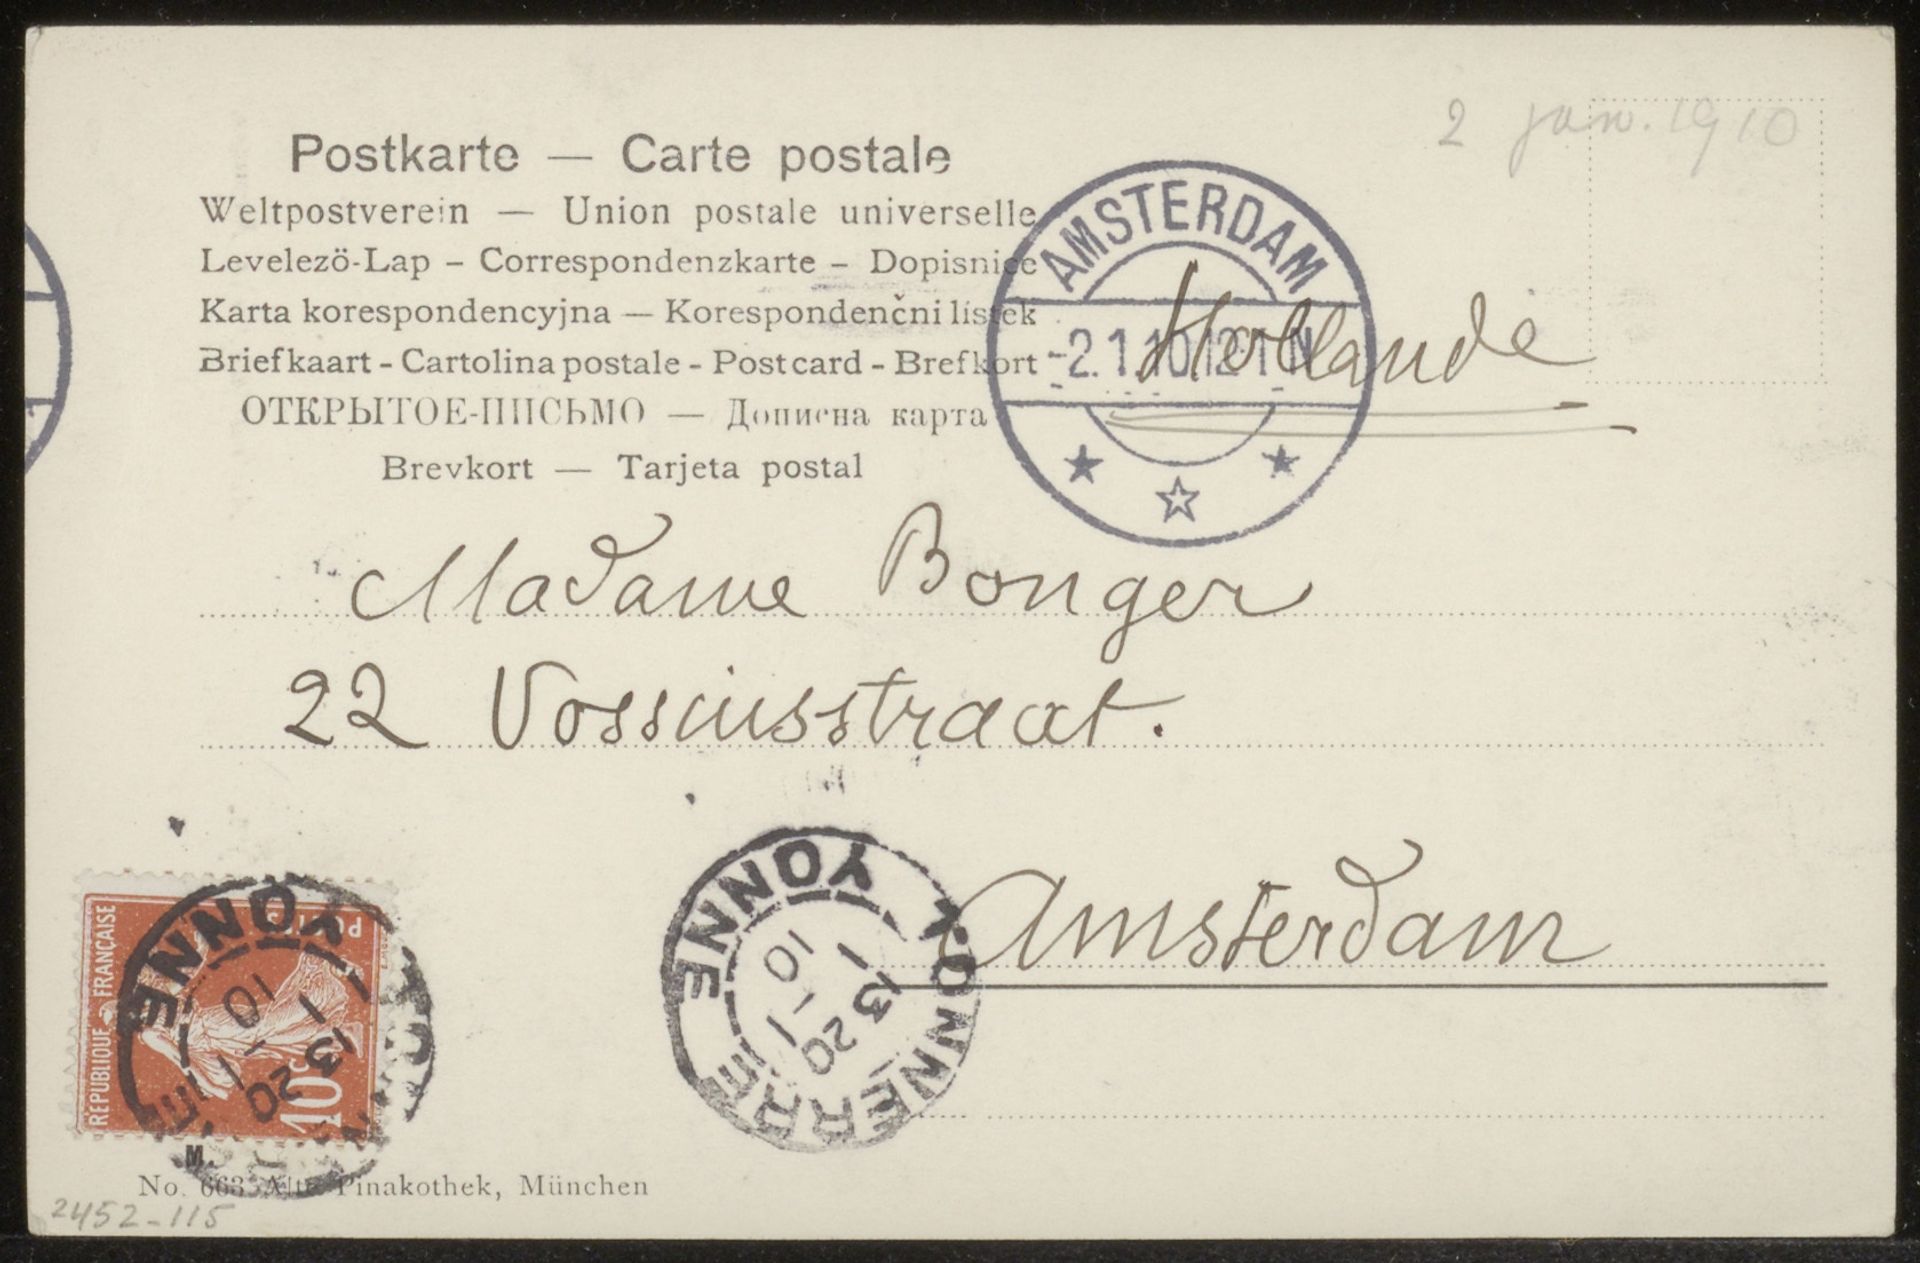 2 jan. 1910
Postkarte — Carte postale
Weltpostverein — Union postale universelle
Levelezö-Lap – Correspondenzkarte – Dopisnice
Karta korespondencyjna — Korespondenčni lístek
Briefkaart - Cartolina postale - Postcard - Brefkort
ОТКРЫТОЕ-ПИСЬМО — Дописна карта
Brevkort — Tarjeta postal
AMSTERDAM
-2.1.10.12-1N
Hollande
Madame Bonger
22 Vossiusstraat.
Amsterdam
TONNERRE
YONNE
13 20
1 -1
10
REPUBLIQUE FRANÇAISE
POSTES
10c
YONNE
13 20
1 -1
10
M.
No. 663 Alte Pinakothek, München
2452-115